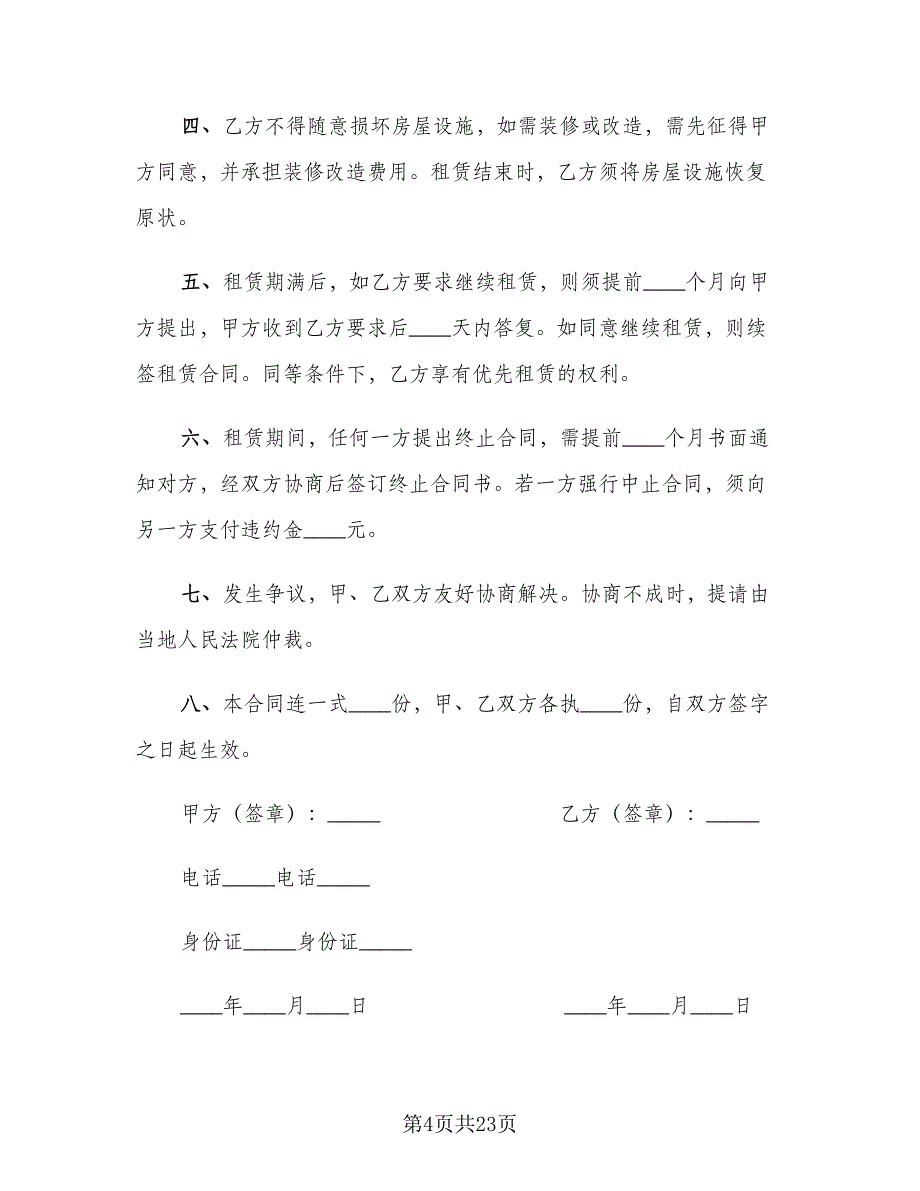 四、乙方不得随意损坏房屋设施，如需装修或改造，需先征得甲
方同意，并承担装修改造费用。租赁结束时，乙方须将房屋设施恢复
原状。
五、租赁期满后，如乙方要求继续租赁，则须提前____个月向甲
方提出，甲方收到乙方要求后____天内答复。如同意继续租赁，则续
签租赁合同。同等条件下，乙方享有优先租赁的权利。
六、租赁期间，任何一方提出终止合同，需提前____个月书面通
知对方，经双方协商后签订终止合同书。若一方强行中止合同，须向
另一方支付违约金____元。
七、发生争议，甲、乙双方友好协商解决。协商不成时，提请由
当地人民法院仲裁。
八、本合同连一式____份，甲、乙双方各执____份，自双方签字
之日起生效。
甲方（签章）：_____ 乙方（签章）：_____
电话_____电话_____
身份证_____身份证_____
____年____月____日 ____年____月____日
第4页共23页